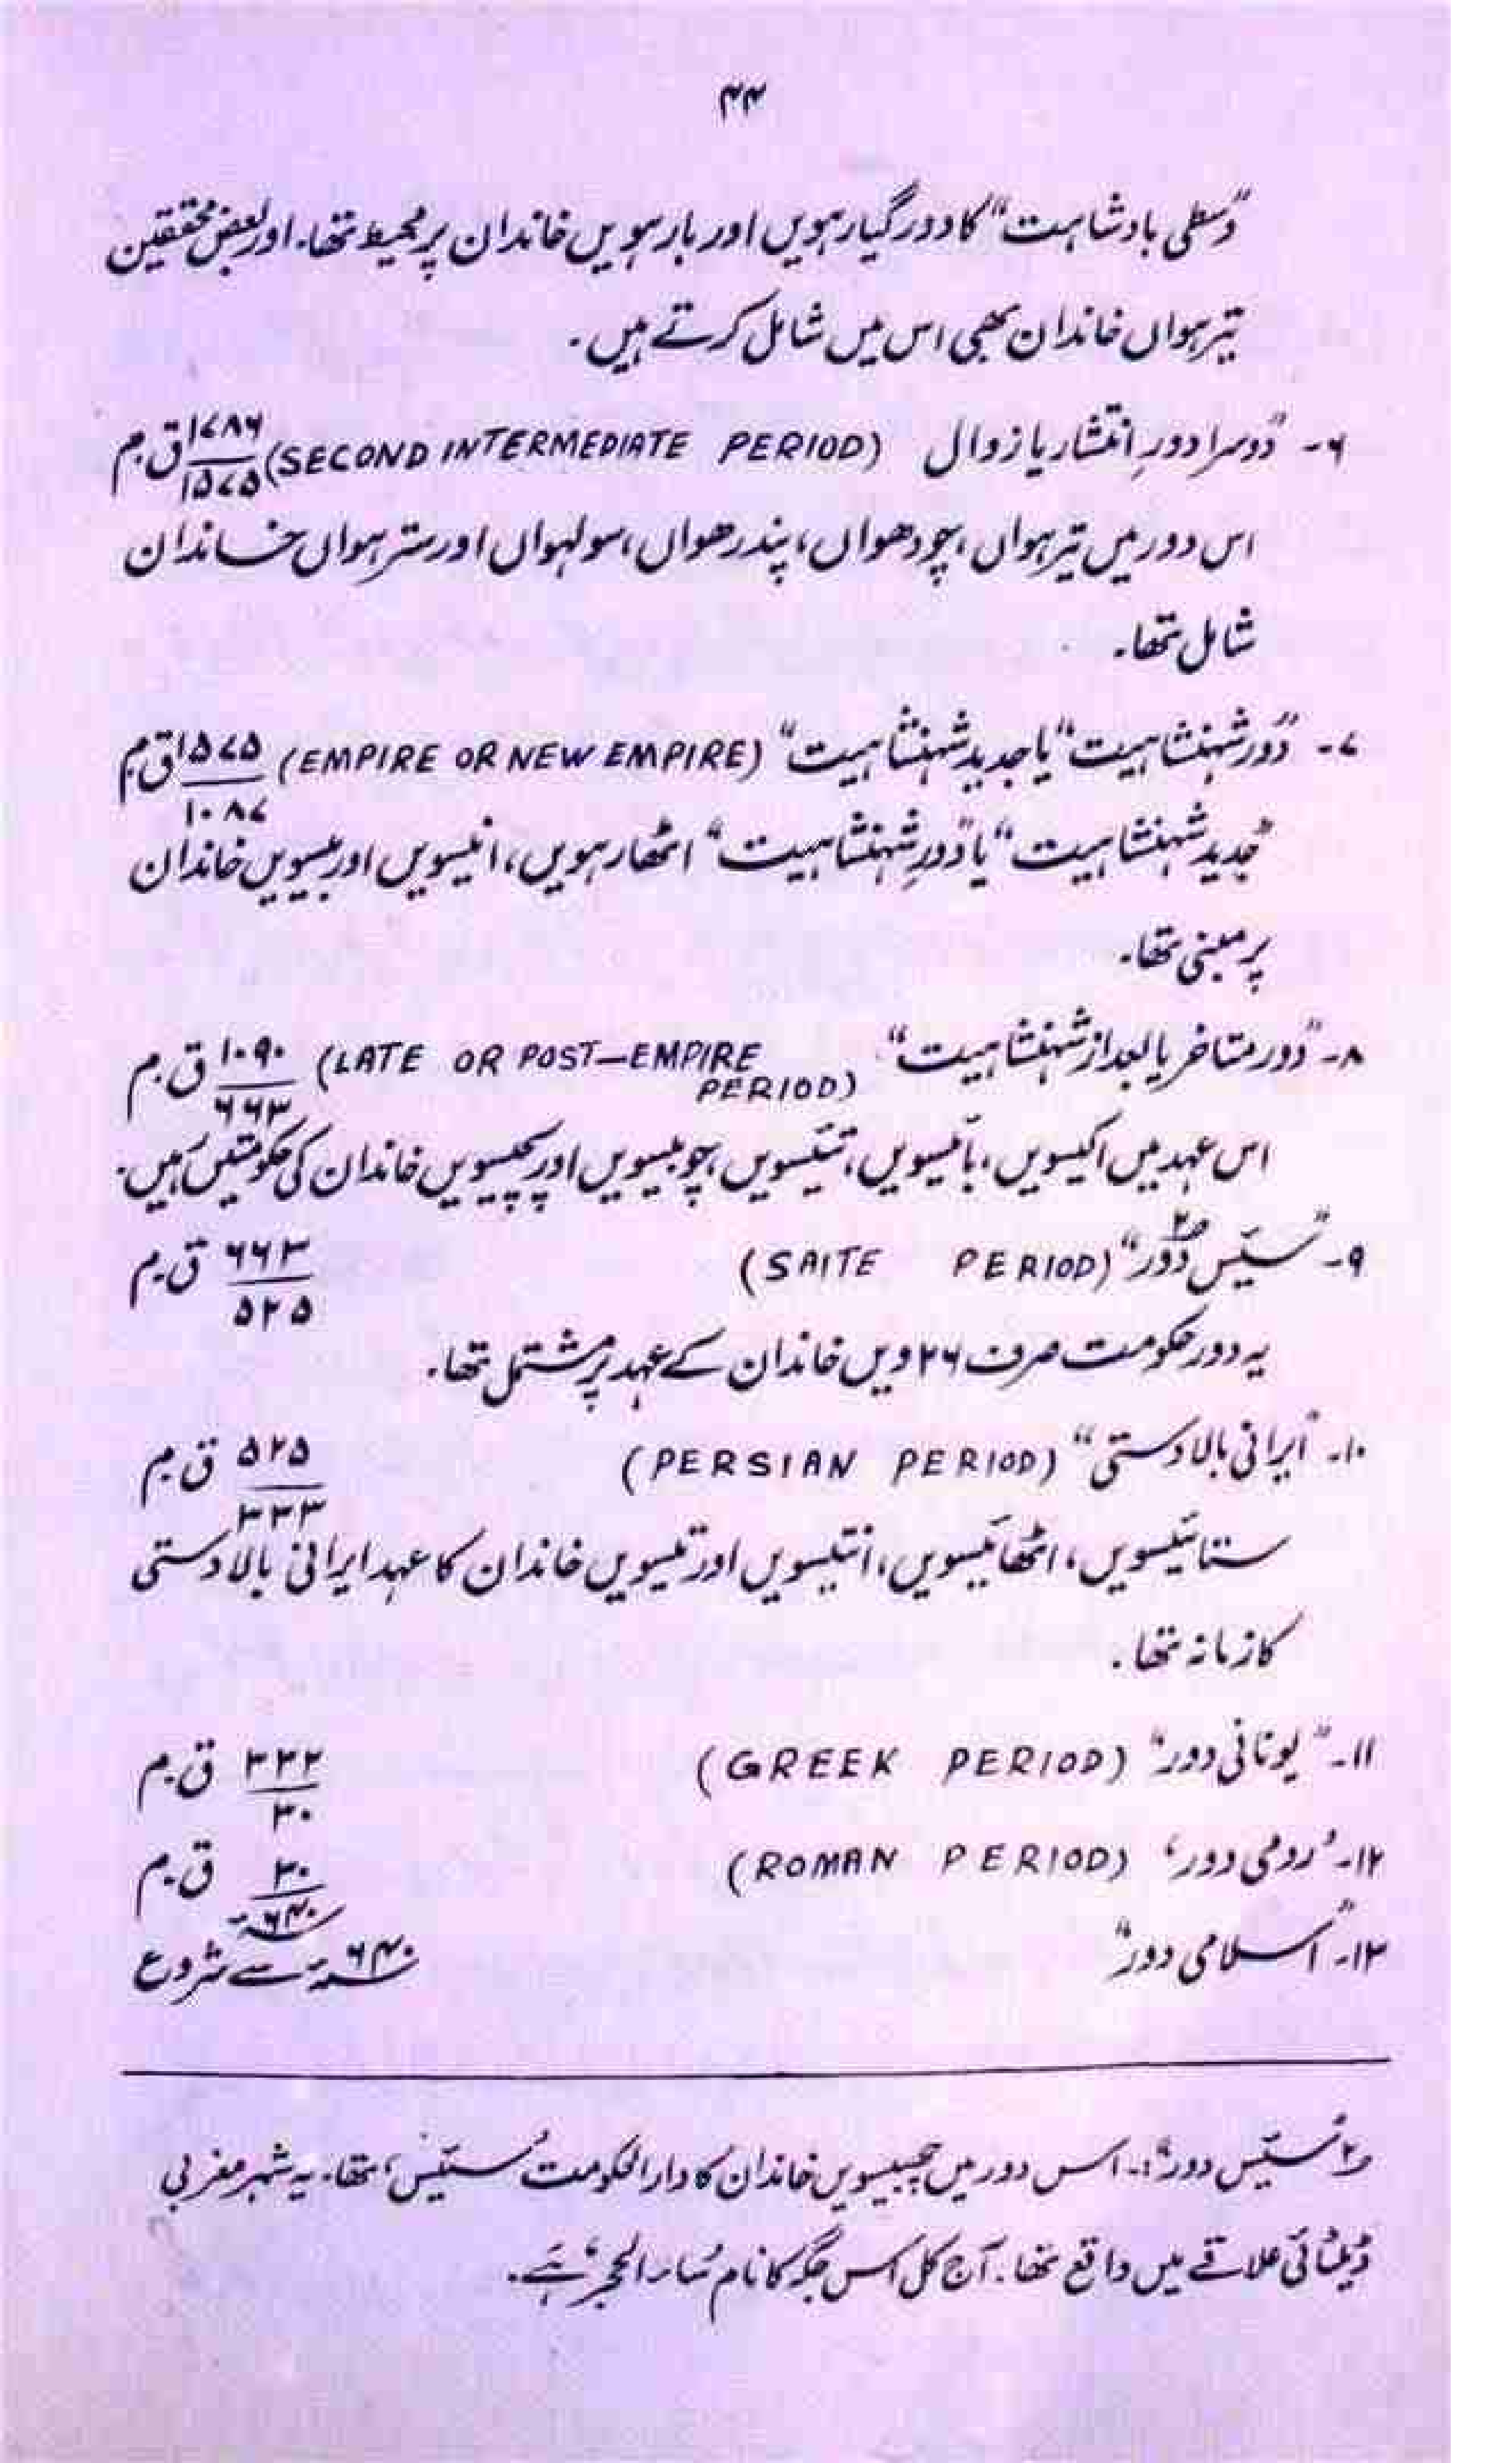 ۴۴
"وسطی بادشاہت" کا دور گیارہویں اور بارہویں خاندان پر محیط تھا۔ اور بعض محققین
تیرہواں خاندان بھی اس میں شامل کرتے ہیں۔
۶۔ "دوسرا دورِ انتشار یا زوال (SECOND INTERMEDIATE PERIOD) ۱۷۸۶/۱۵۷۵ ق۔م
اس دور میں تیرہواں، چودھواں، پندرھواں، سولہواں اور سترہواں خاندان
شامل تھا۔
۷۔ "دَورِ شہنشاہیت" یا جدید شہنشاہیت" (EMPIRE OR NEW EMPIRE) ۱۵۷۵/۱۰۸۷ ق۔م
"جدید شہنشاہیت" یا "دَورِ شہنشاہیت" اٹھارہویں، انیسویں اور بیسویں خاندان
پر مبنی تھا۔
۸۔ "دَور متاخر یا بعد از شہنشاہیت" (LATE OR POST-EMPIRE PERIOD) ۱۰۹۰/۶۶۳ ق۔م
اس عہد میں اکیسویں، بائیسویں، تئیسویں، چوبیسویں اور پچیسویں خاندان کی حکومتیں رہیں۔
۹۔ "سئیس دَور" ۲ (SAITE PERIOD) ۶۶۳/۵۲۵ ق۔م
یہ دور حکومت صرف ۲۶ ویں خاندان کے عہد پر مشتمل تھا۔
۱۰۔ "ایرانی بالادستی" (PERSIAN PERIOD) ۵۲۵/۳۳۳ ق۔م
ستائیسویں، اٹھائیسویں، انتیسویں اور تیسویں خاندان کا عہد ایرانی بالادستی
کا زمانہ تھا۔
۱۱۔ "یونانی دور" (GREEK PERIOD) ۳۳۲/۳۰ ق۔م
۱۲۔ 'رومی دور' (ROMAN PERIOD) ۳۰/۶۴۰ ق۔م
۱۳۔ "اسلامی دور" ۶۴۰ء سے شروع
۲ "سئیس دور":۔ اس دور میں چھبیسویں خاندان کا دارالحکومت 'سئیس' تھا۔ یہ شہر مغربی
ڈیلٹائی علاقے میں واقع تھا۔ آج کل اس جگہ کا نام 'سارالحجر' ہے۔